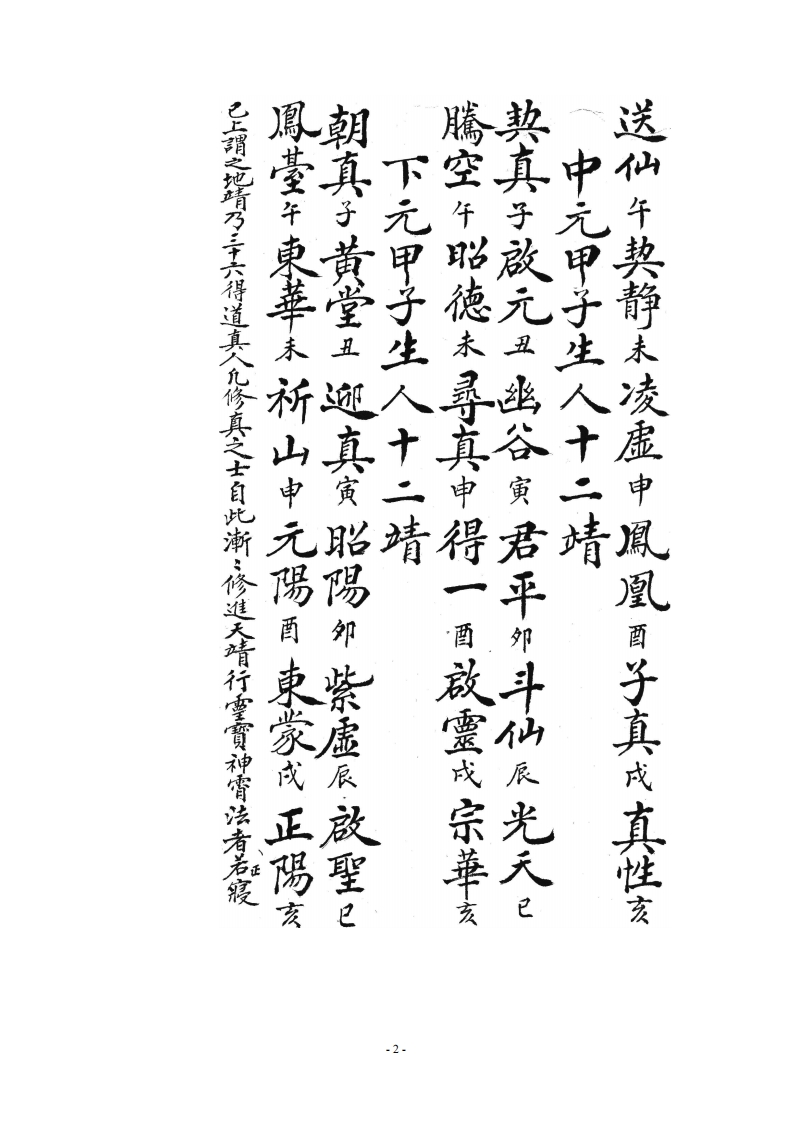 送仙午契靜未凌虛申鳳凰酉子真戌真性亥
中元甲子生人十二靖
契真子啟元丑幽谷寅君平卯斗仙辰光天巳
騰空午昭德未尋真申得一酉啟靈戌宗華亥
下元甲子生人十二靖
朝真子黃堂丑迎真寅昭陽卯紫虛辰啟聖巳
鳳臺午東華未祈山申元陽酉東蒙戌正陽亥
已上謂之地靖乃三十六得道真人凡修真之士自此漸〻修進天靖行靈寶神霄法者若正寢
- 2 -